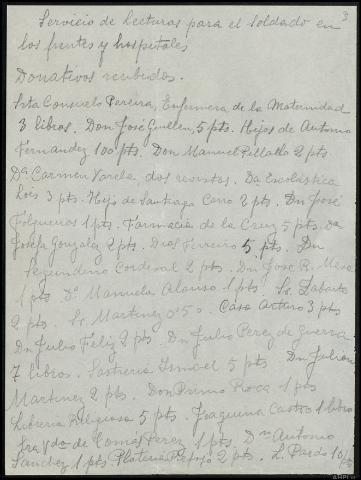 3
Servicio de Lecturas para el Soldado en
los frentes y hospitales
Donativos recibidos.
Srta Consuelo Pereira, Enfermera de la Maternidad
3 libros. Don José Guillen, 5 pts. Hijos de Antonio
Fernandez 100 pts. Don Manuel Pillado 2 pts
Dª Carmen Varela dos revistas. Dª Escolástica
Lois 3 pts. Hijo de Santiago Carro 2 pts. Dn José
Folgueiras 1 pts. Farmacia de la Cruz 5 pts. Dª
Josefa Gonzalez 2 pts. Dias Ferreiro 5 pts. Dn
Segundino Cordeval 2 pts. Dn José R. Mesa
1 pts Dª Manuela Alonso 1 pts. Sr. Labarta
2 pts. Sr Martinez 0'50. Casa Arturo 3 pts
Dn Julio Feliz 2 pts. Dn Julio Perez de Guerra
7 libros. Sastreria Ismael 5 pts Dn Julian
Martinez 2 pts. Don Primo Roca 1 pts
Libreria Religiosa 5 pts. Joaquina Castro 1 libro
Sra Vda de Tomas Perez 1 pts. Dn Antonio
Sanchez 1 pts. Plateria Pefojo 2 pts. L. Pardo 10 pts